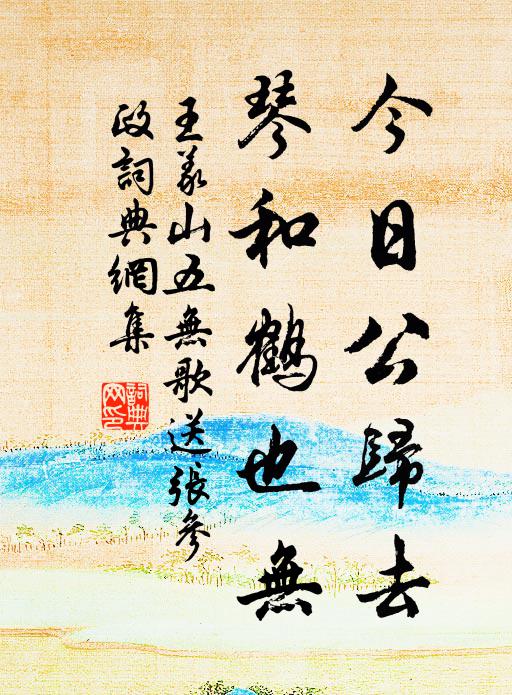 今日公歸去
琴和鶴也無
王義山五無歌送張參
政詞典網集
詞典
網印